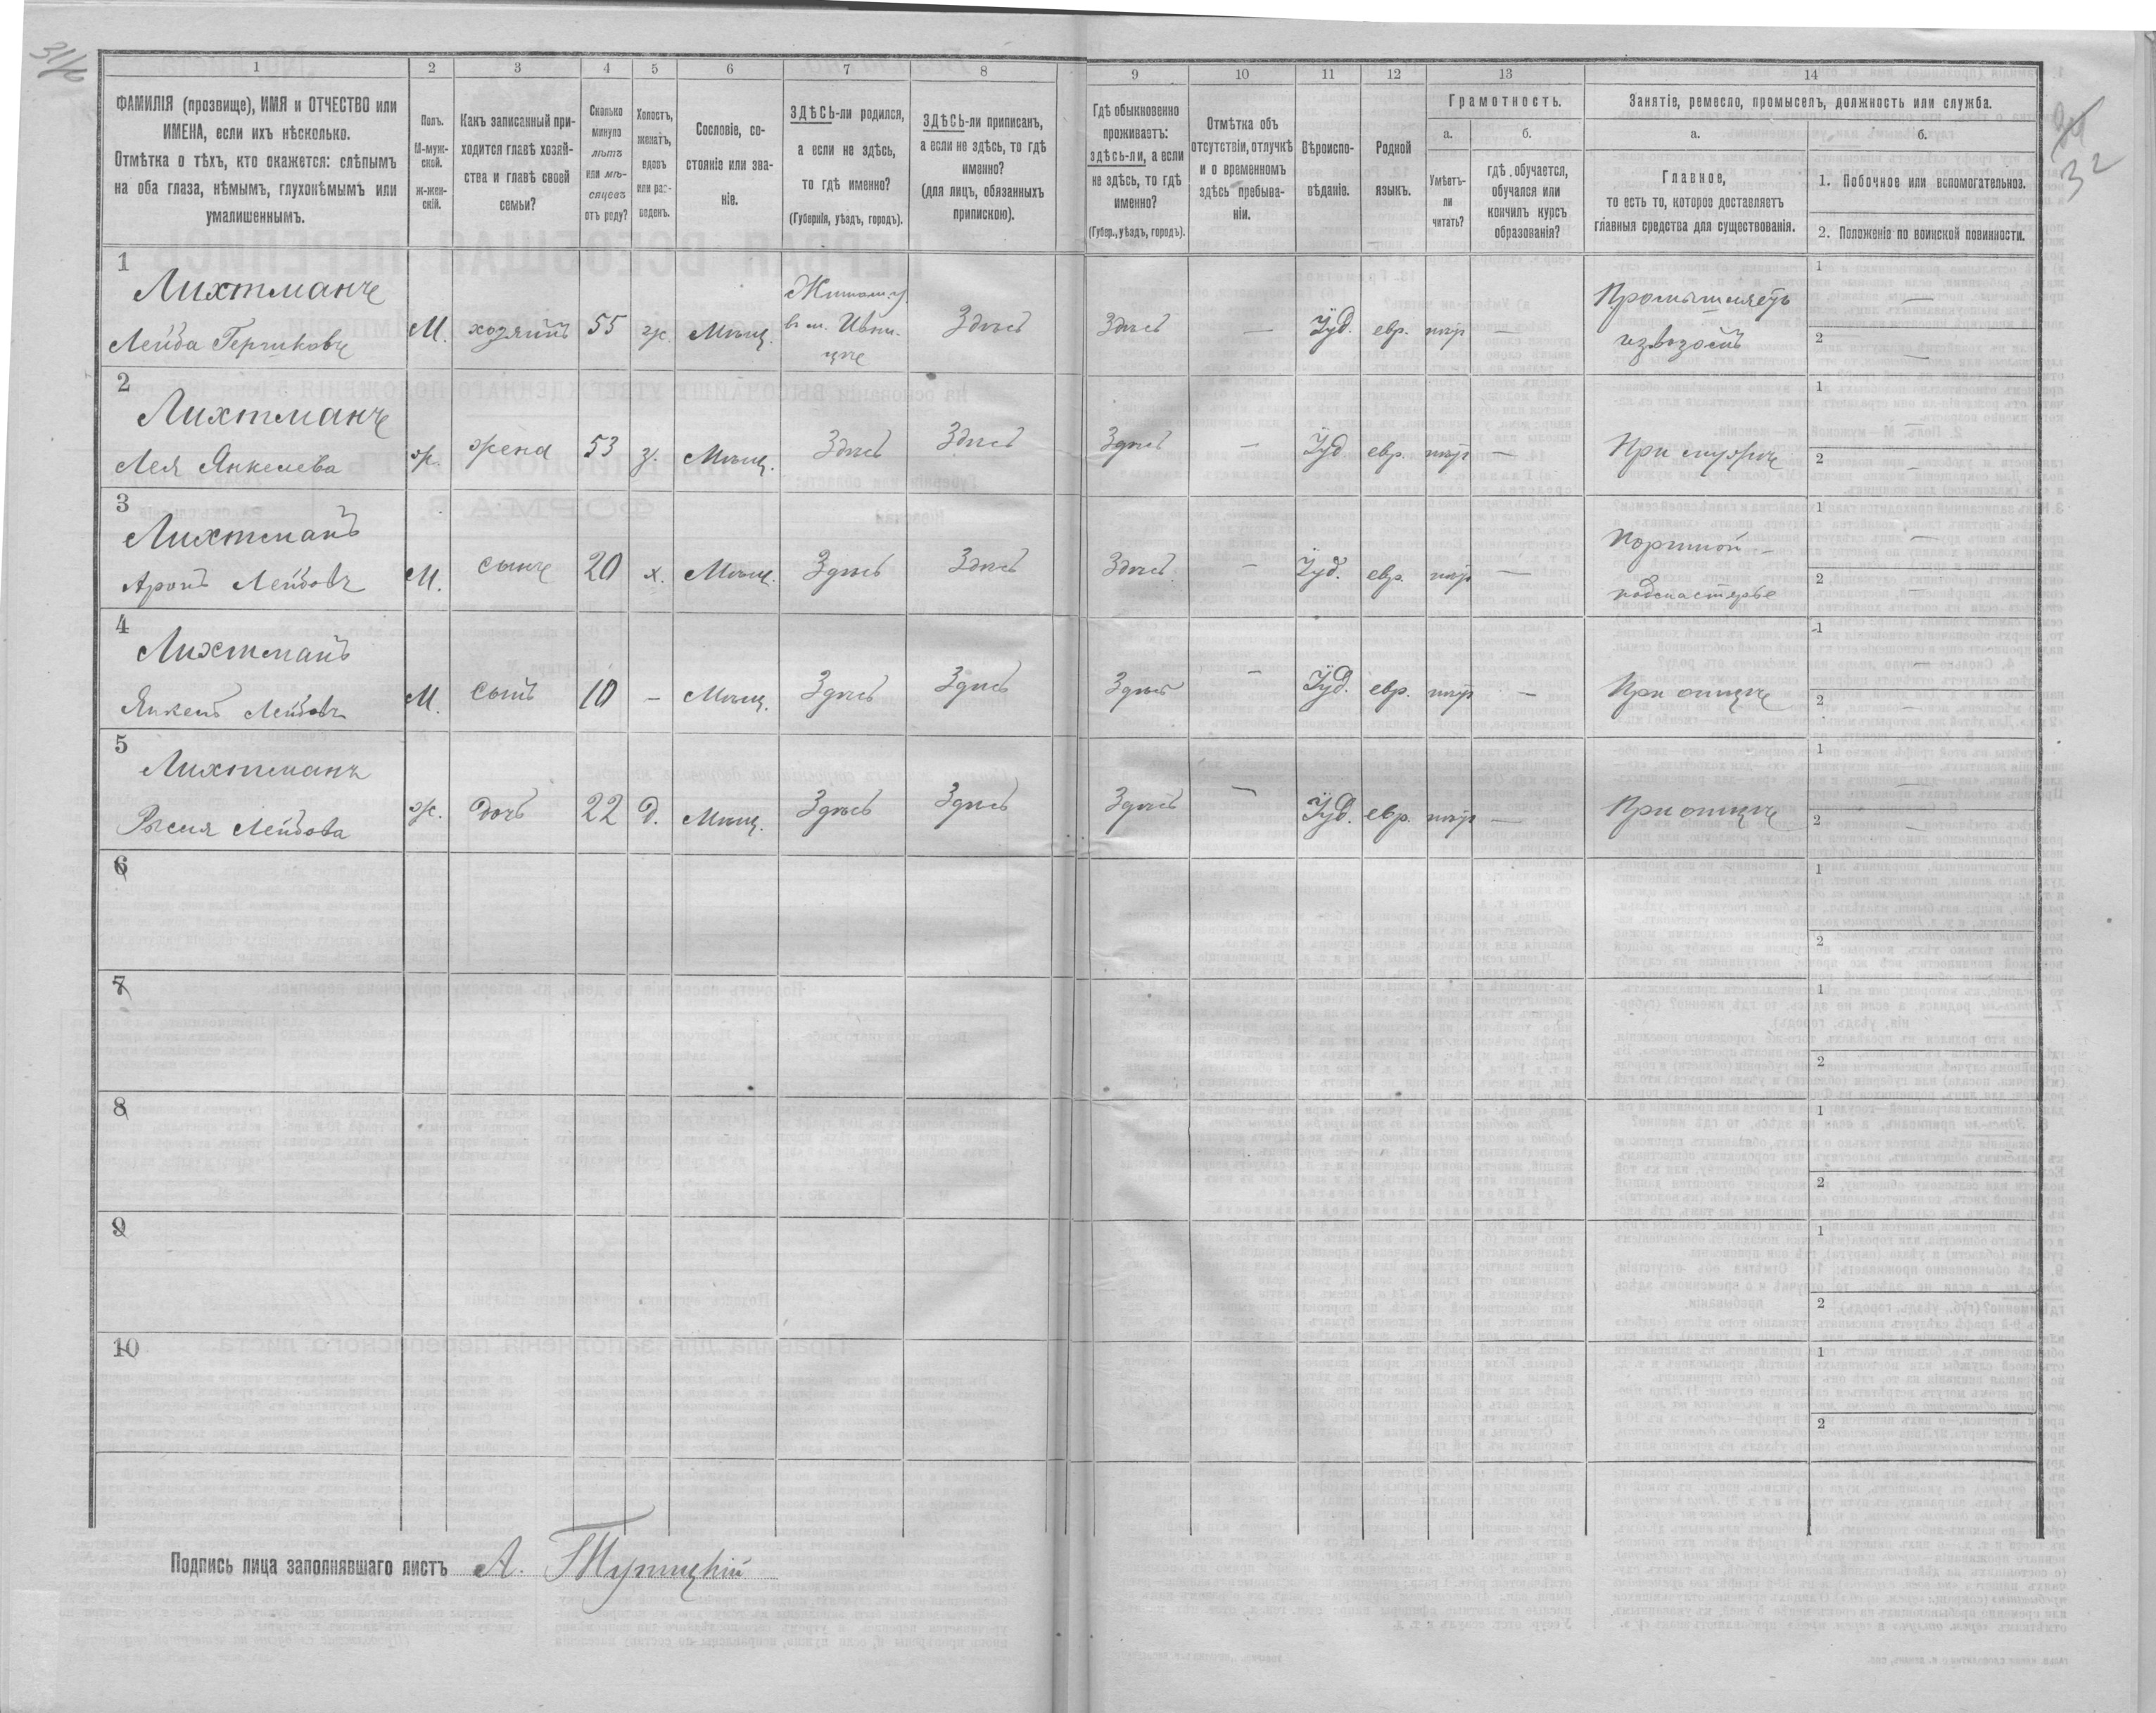 31/6
1 2 3 4 5 6 7 8 9 10 11 12 13 14
ФАМИЛІЯ (прозвище), ИМЯ и ОТЧЕСТВО или
ИМЕНА, если ихъ нѣсколько.
Отмѣтка о тѣхъ, кто окажется: слѣпымъ
на оба глаза, нѣмымъ, глухонѣмымъ или
умалишеннымъ.
Полъ.
М-муж-
ской.
ж-жен-
скій.
Какъ записанный при-
ходится главѣ хозяй-
ства и главѣ своей
семьи?
Сколько
минуло
лѣтъ
или мѣ-
сяцевъ
отъ роду?
Холостъ,
женатъ,
вдовъ
или раз-
веденъ.
Сословіе, со-
стояніе или зва-
ніе.
ЗДѢСЬ-ли родился,
а если не здѣсь,
то гдѣ именно?
(Губернія, уѣздъ, городъ).
ЗДѢСЬ-ли приписанъ,
а если не здѣсь, то гдѣ
именно?
(для лицъ, обязанныхъ
припискою).
Гдѣ обыкновенно
проживаетъ:
здѣсь-ли, а если
не здѣсь, то гдѣ
именно?
(Губер., уѣздъ, городъ).
Отмѣтка объ
отсутствіи, отлучкѣ
и о временномъ
здѣсь пребыва-
ніи.
Вѣроиспо-
вѣданіе.
Родной
языкъ.
Грамотность.
а. б.
Умѣетъ-
ли
читать?
гдѣ обучается,
обучался или
кончилъ курсъ
образованія?
Занятіе, ремесло, промыселъ, должность или служба.
а. б.
Главное,
то есть то, которое доставляетъ
главныя средства для существованія.
1. Побочное или вспомогательное.
2. Положеніе по воинской повинности.
32
1
Лихтманъ
Лейба Гершковъ М. хозяинъ 55 ж. Мѣщ. Здѣсь Здѣсь — Іуд. евр. — Промышляетъ извозомъ 1 — 2 —
2
Лихтманъ
Лея Янкелева ж. жена 53 з. Мѣщ. Здѣсь Здѣсь Здѣсь — Іуд. евр. — При мужѣ 1 — 2 —
3
Лихтманъ
Аронъ Лейбовъ М. сынъ 20 х. Мѣщ. Здѣсь Здѣсь Здѣсь — Іуд. евр. — Портной – подмастерье 1 — 2 —
4
Лихтманъ
Янкель Лейбовъ М. сынъ 10 — Мѣщ. Здѣсь Здѣсь Здѣсь — Іуд. евр. — При отцѣ 1 — 2 —
5
Лихтманъ
Рыся Лейбова ж. дочь 22 д. Мѣщ. Здѣсь Здѣсь Здѣсь — Іуд. евр. — При отцѣ 1 — 2 —
6 1 2
7 1 2
8 1 2
9 1 2
10 1 2
Подпись лица заполнявшаго листъ А.